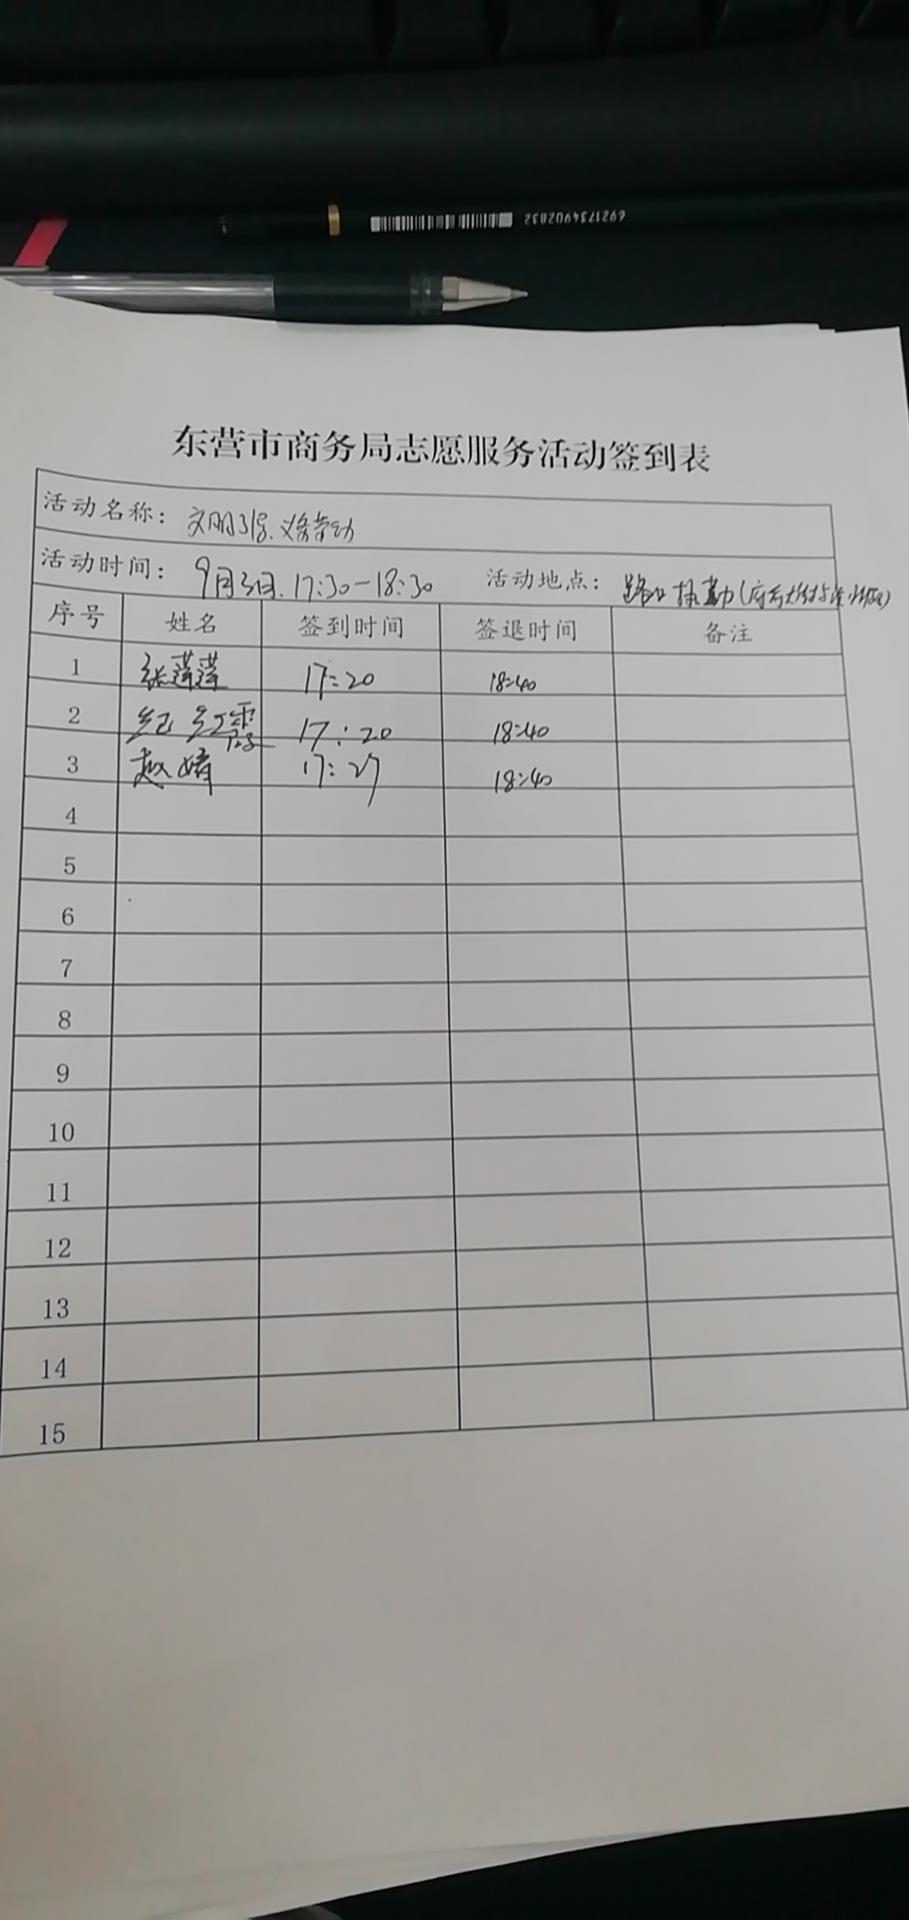 6921734902832
东营市商务局志愿服务活动签到表
活动名称: 文明引导、义务劳动
活动时间: 9月3日. 17:30-18:30 活动地点: 路口执勤(府
序号 姓名 签到时间 签退时间 备注
1 张莲莲 17:20 18:40
2 纪红霞 17:20 18:40
3 赵婧 17:27 18:40
4
5
6
7
8
9
10
11
12
13
14
15